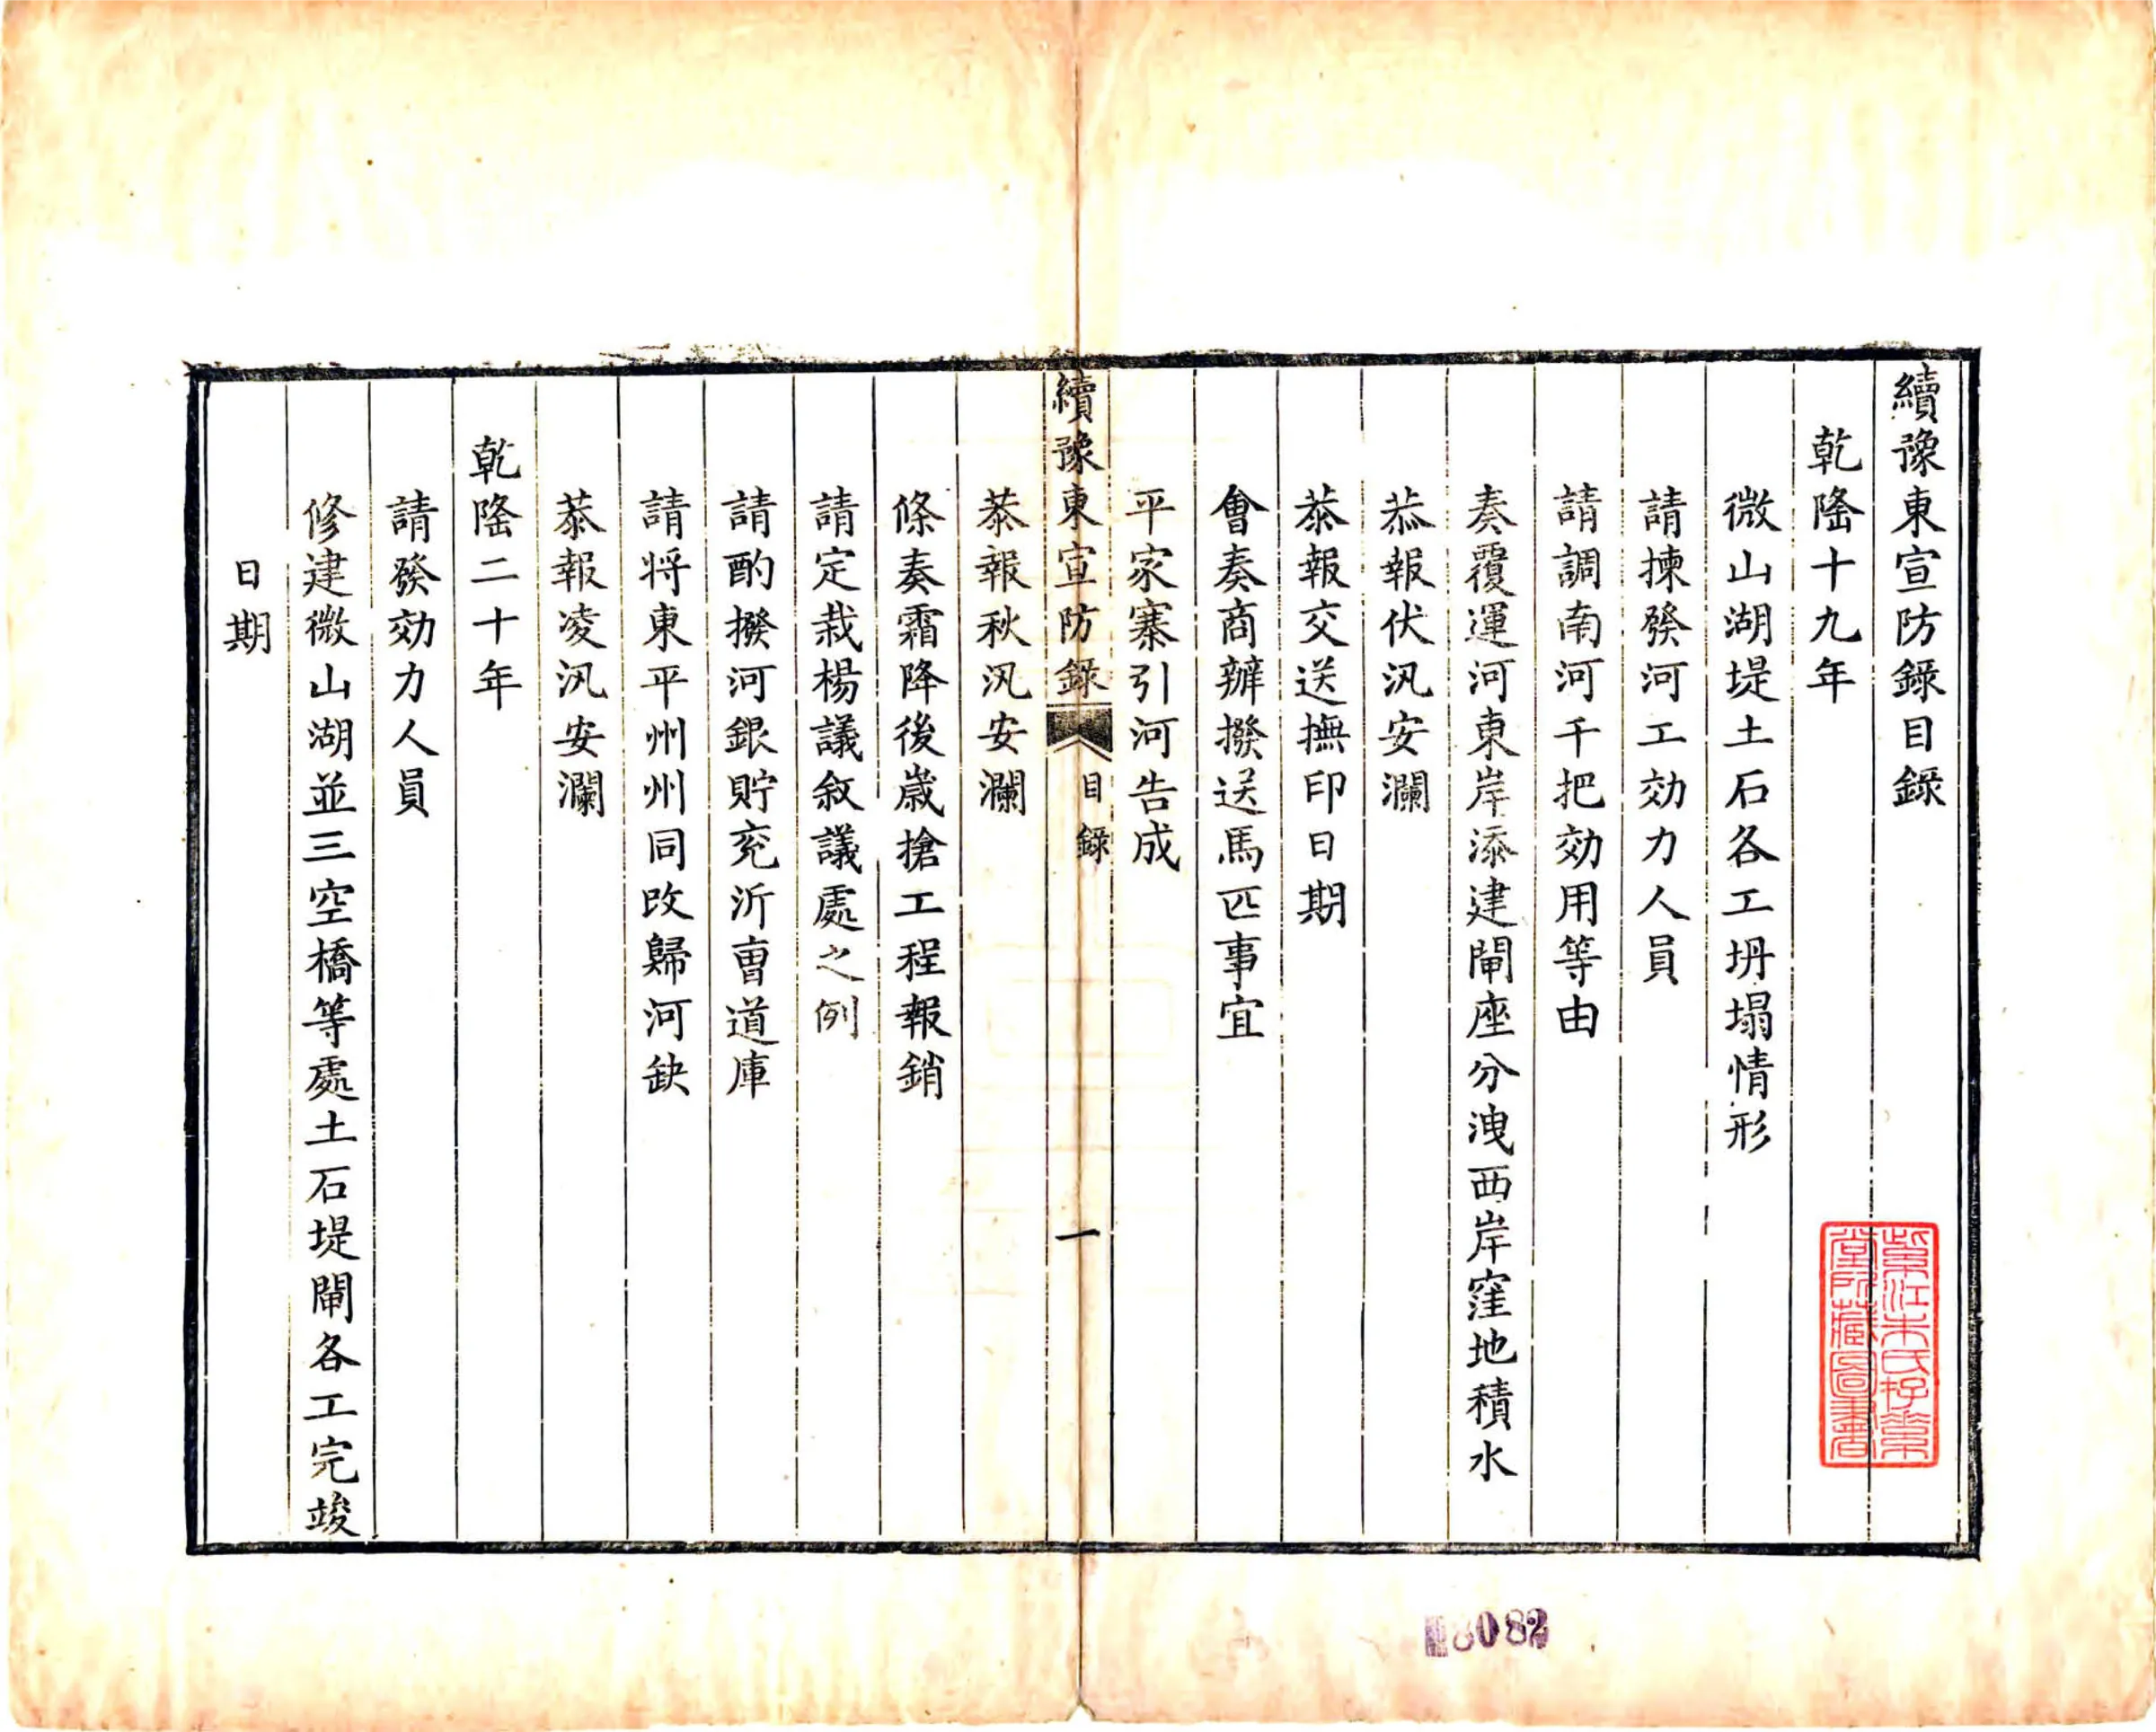 續豫東宣防錄目錄
乾隆十九年
微山湖堤土石各工坍塌情形
請揀發河工効力人員
請調南河千把効用等由
奏覆運河東岸添建閘座分洩西岸窪地積水
恭報伏汛安瀾
恭報交送撫印日期
會奏商辦撥送馬匹事宜
平家寨引河告成
續豫東宣防錄
目錄
一
恭報秋汛安瀾
條奏霜降後歲搶工程報銷
請定栽楊議敘議處之例
請酌撥河銀貯兗沂曹道庫
請將東平州州同改歸河缺
恭報凌汛安瀾
乾隆二十年
請發効力人員
修建微山湖並三空橋等處土石堤閘各工完竣
日期
紫江朱氏存素
堂所藏圖書
8082